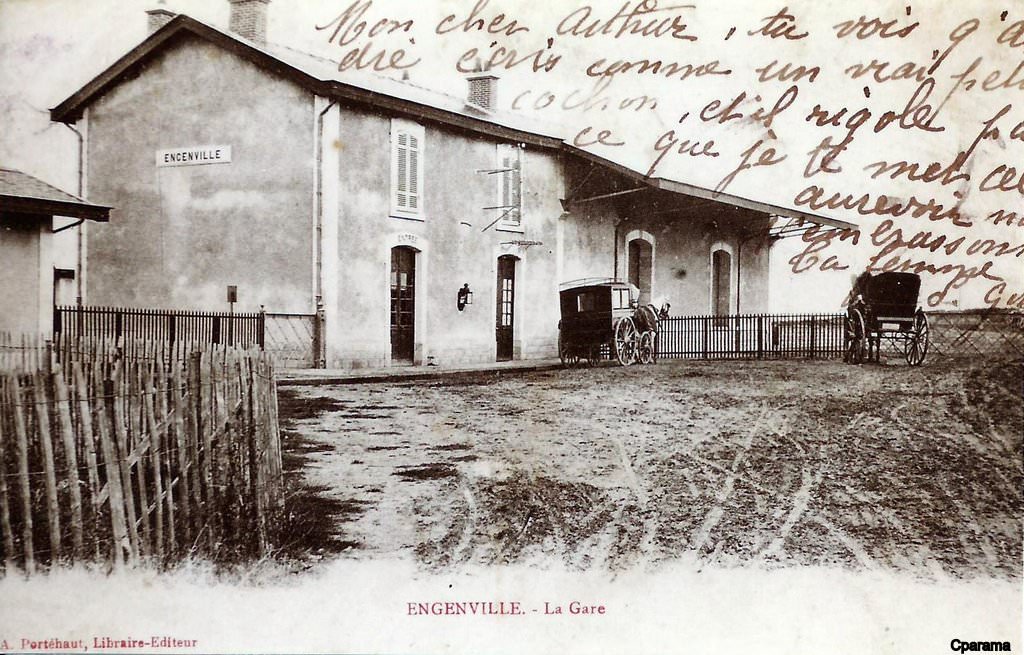 Mon cher Arthur, tu vois q'
dré écris comme un vrai
cochon, et il rigole
ce que je te met
aurevoir
embrassons
Ta femme
ENGENVILLE
ENTRÉE
ENGENVILLE. - La Gare
A. Portéhaut, Libraire-Editeur
Cparama